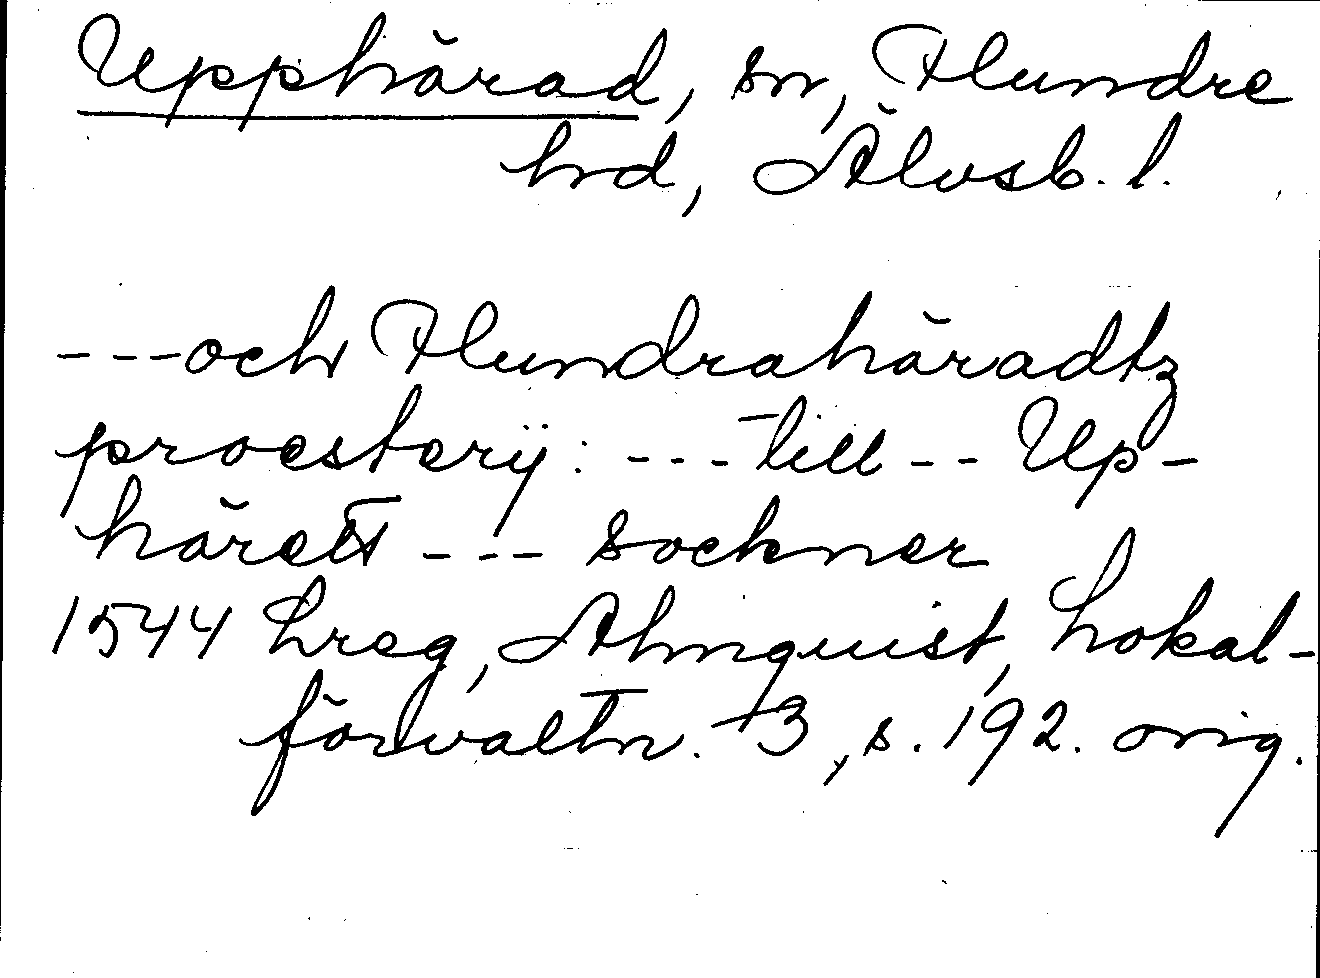 Upphärad, sn, Flundre
hd, Älvsb. l.
---och Flundrahäradtz
proesterij: ---till -- Up-
härett --- sockner
1544 Lreg, Almquist, Lokal-
förvaltn. 3, s. 192. orig.